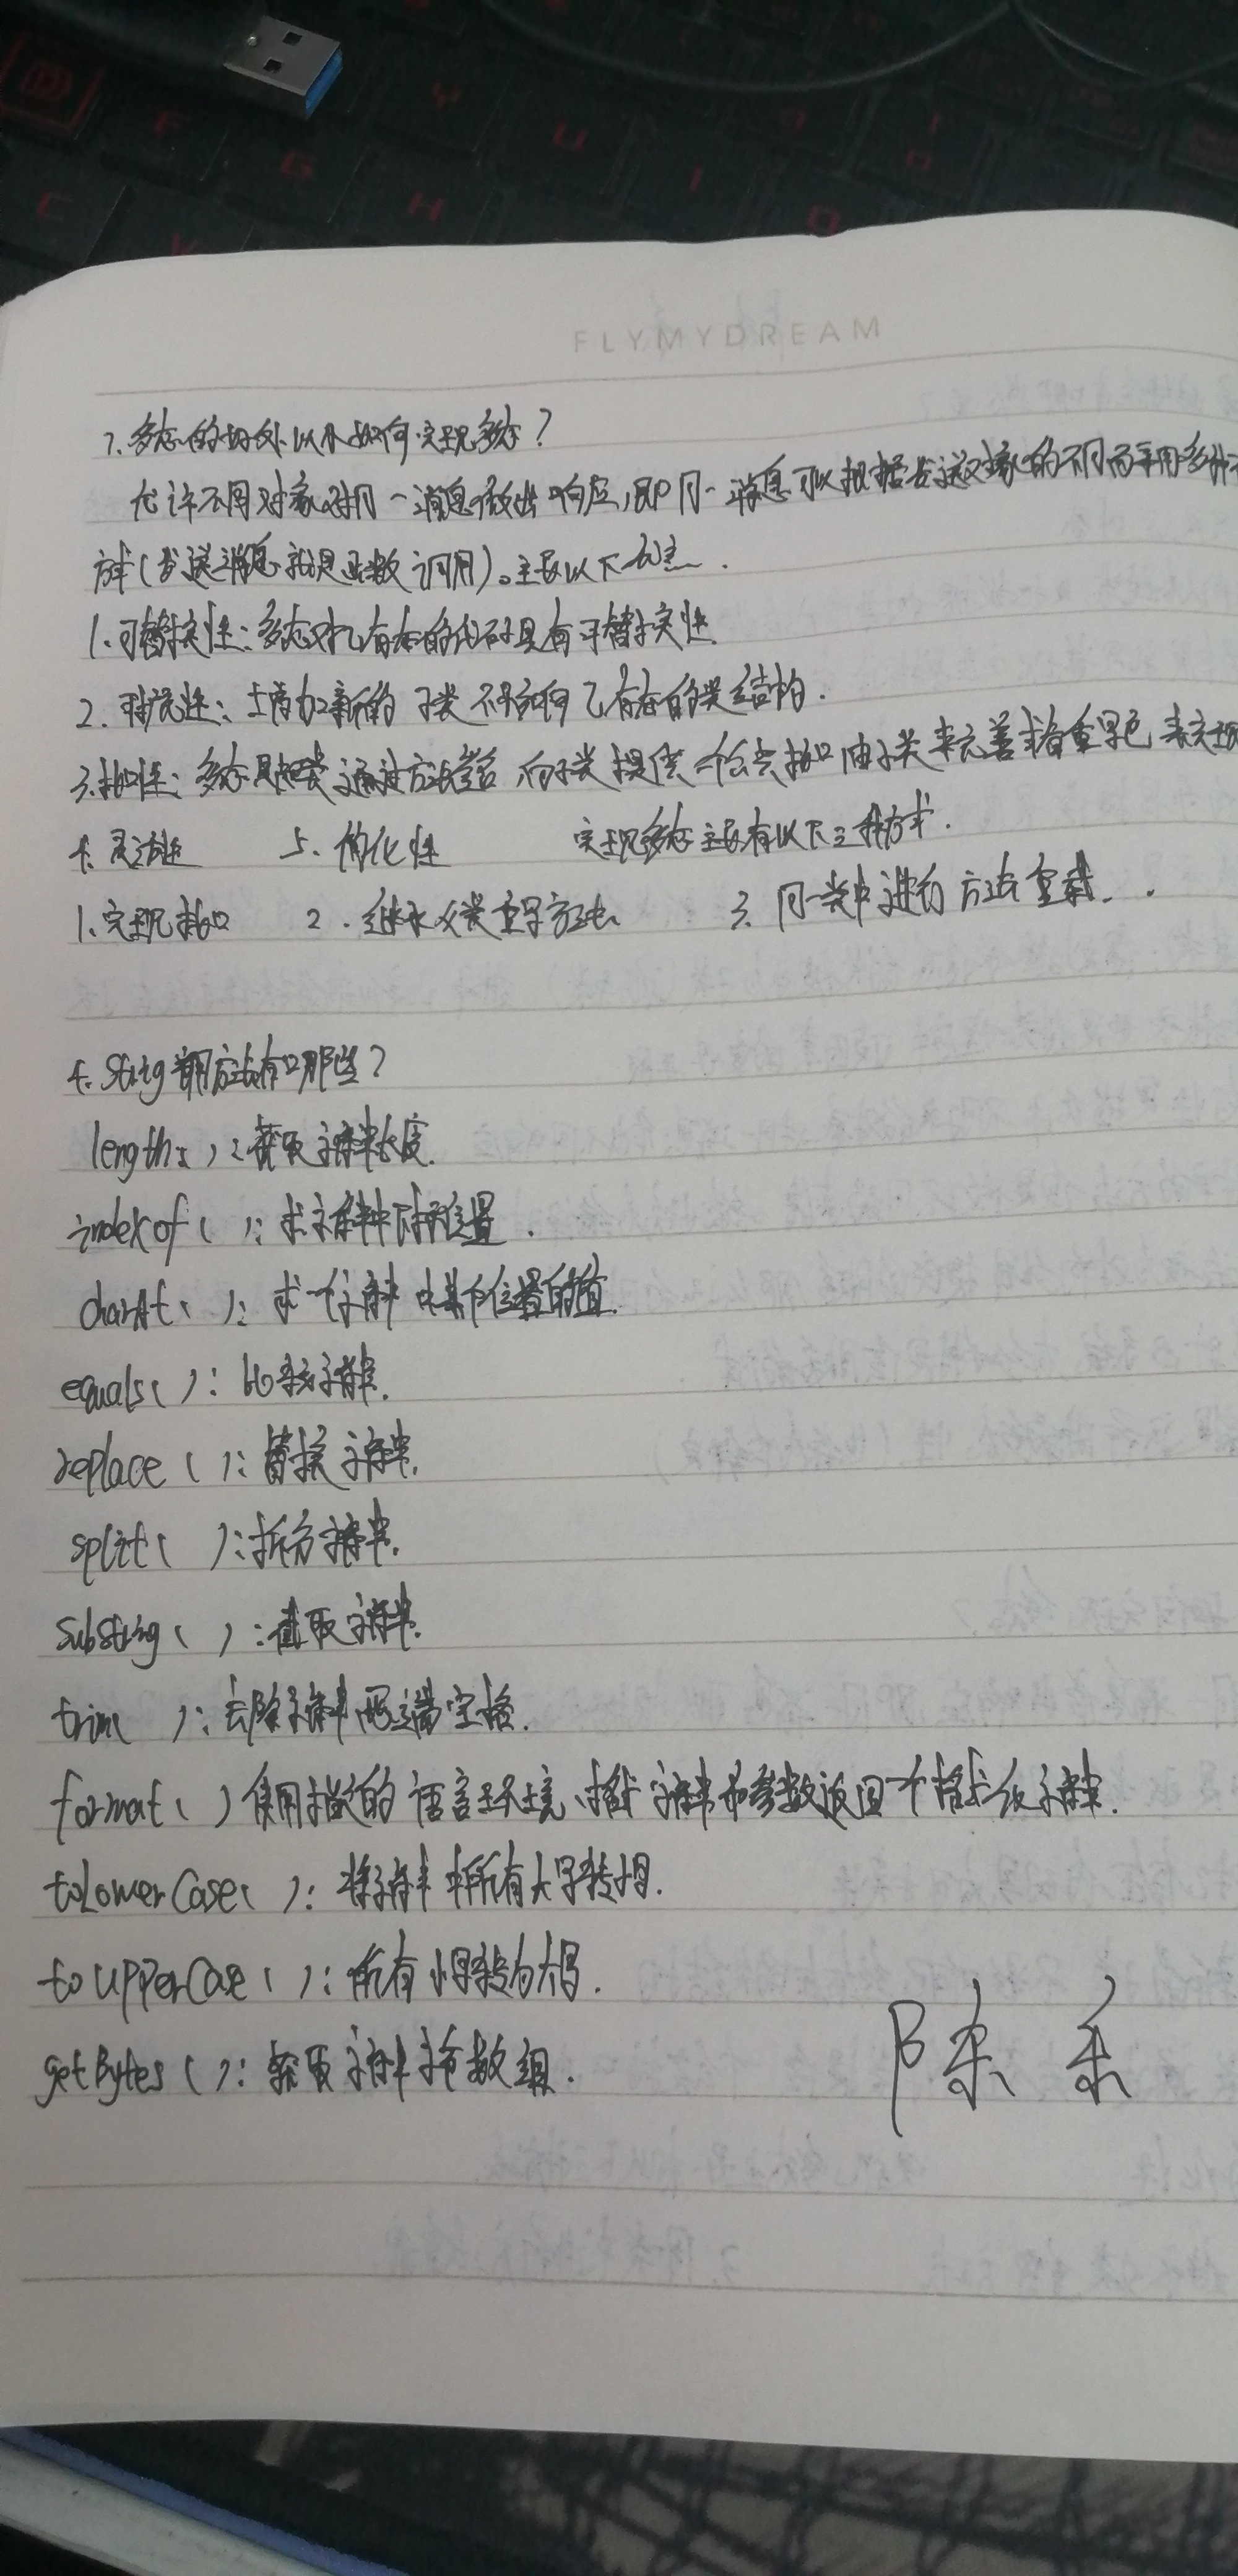 FLYMYDREAM
7.多态的好处以及如何实现多态?
允许不同对象对同一消息做出响应,即同一消息可以根据发送对象的不同而采用多种
方式(发送消息就是函数调用)。主要以下优点.
1.可替换性:多态对已存在的代码具有可替换性.
2.可扩充性:增加新的子类不影响已存在的类结构.
3.接口性:多态是超类通过方法签名,向子类提供一个公共接口由子类来完善或者重写它来实现
4.灵活性 5.简化性 实现多态主要有以下三种方式.
1.实现接口 2.继承父类重写方法 3.同一类中进行方法重载.
4.String常用方法有哪些?
length():获取字符串长度.
indexof():求字符串中下标位置.
charAt():求一个字符串中某个位置的值.
equals():比较字符串.
replace():替换字符串.
split():拆分字符串.
substring():截取字符串.
trim():去除字符串两端空格.
format()使用指定的语言环境、格式字符串和参数返回一个格式化字符串.
toLowerCase():将字符串中所有大写转小写.
toUpperCase():所有小写转为大写.
getBytes():获取字符串字节数组.
陈